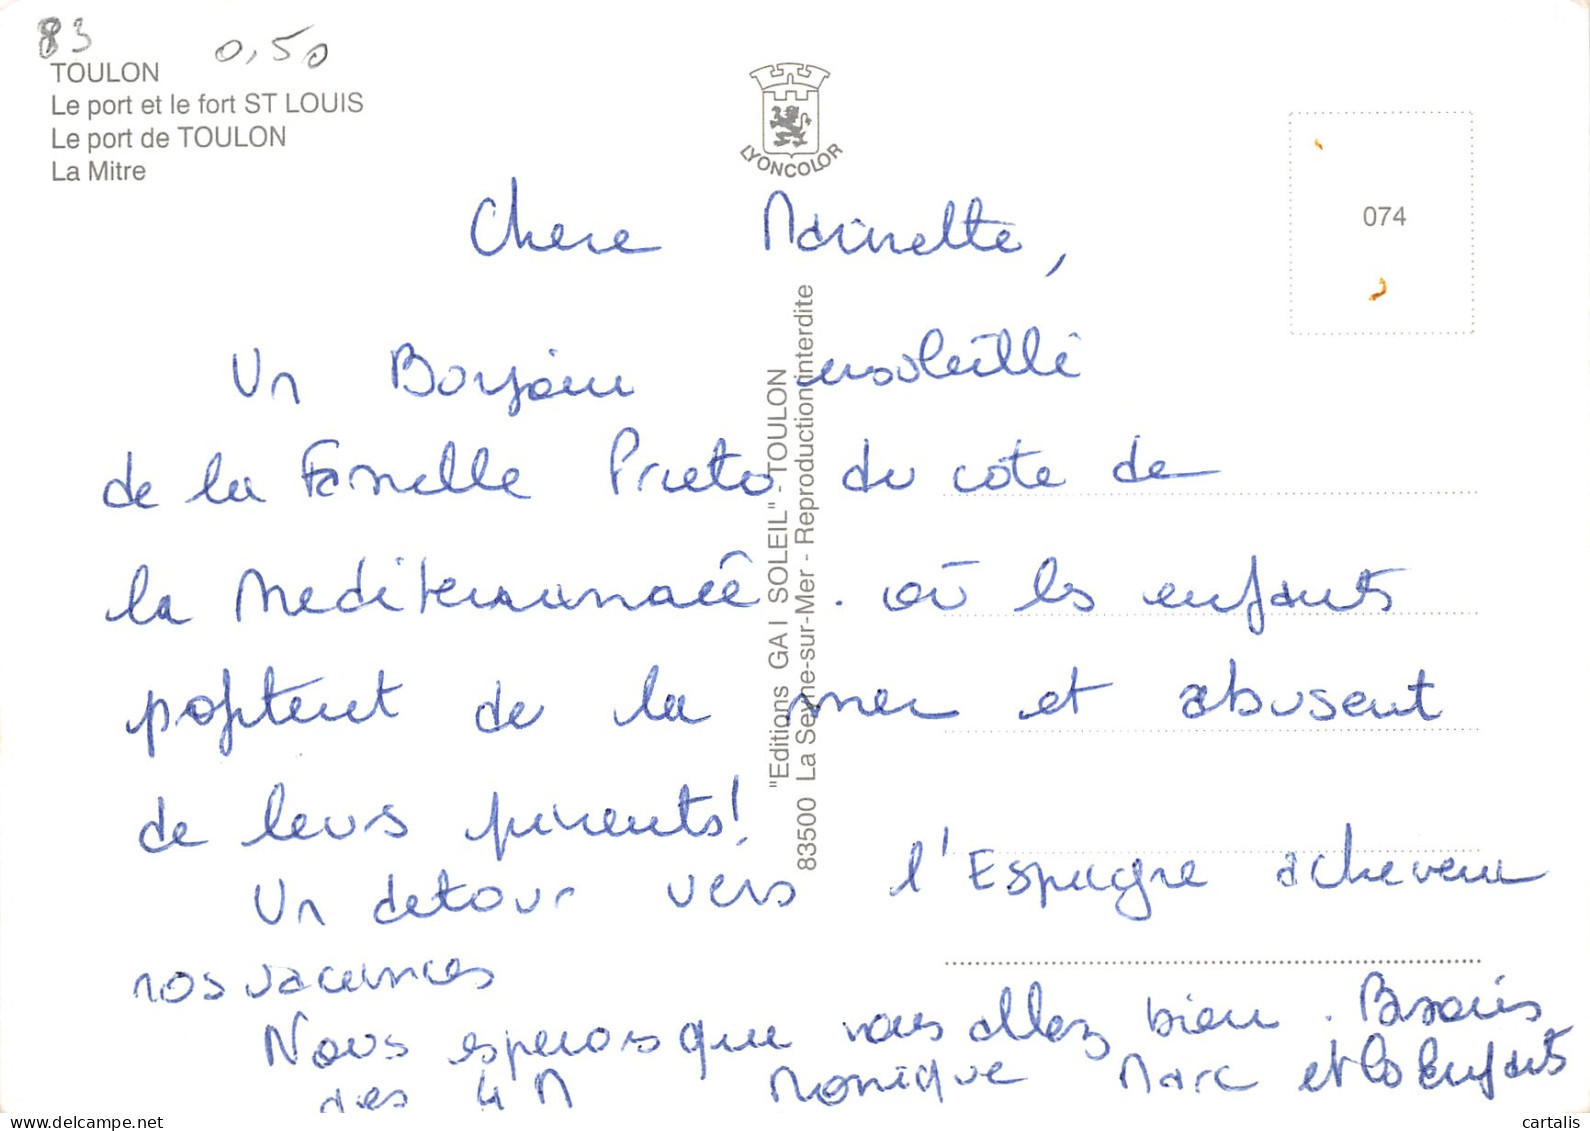 83
0,50
TOULON
Le port et le fort ST LOUIS
Le port de TOULON
La Mitre
LYONCOLOR
074
"Editions GAI SOLEIL" - TOULON
83500 La Seyne-sur-Mer - Reproduction interdite
Chere Marinette,
Un Bonjour ensoleillé
de la Famille Prieto du cote de
la Mediterrannaée . où les enfants
profitent de la mer et abusent
de leurs parents!
Un detour vers l'Espagne achevera
nos vacances
Nous esperons que vous allez bien . Baisers
des 4 M Monique Marc et les Enfants
cartalis